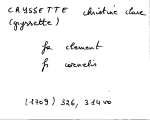 CRYSSETTE christine clare
(gryssette)
fa clement
fs cornelis
(1709) 326, 314vo